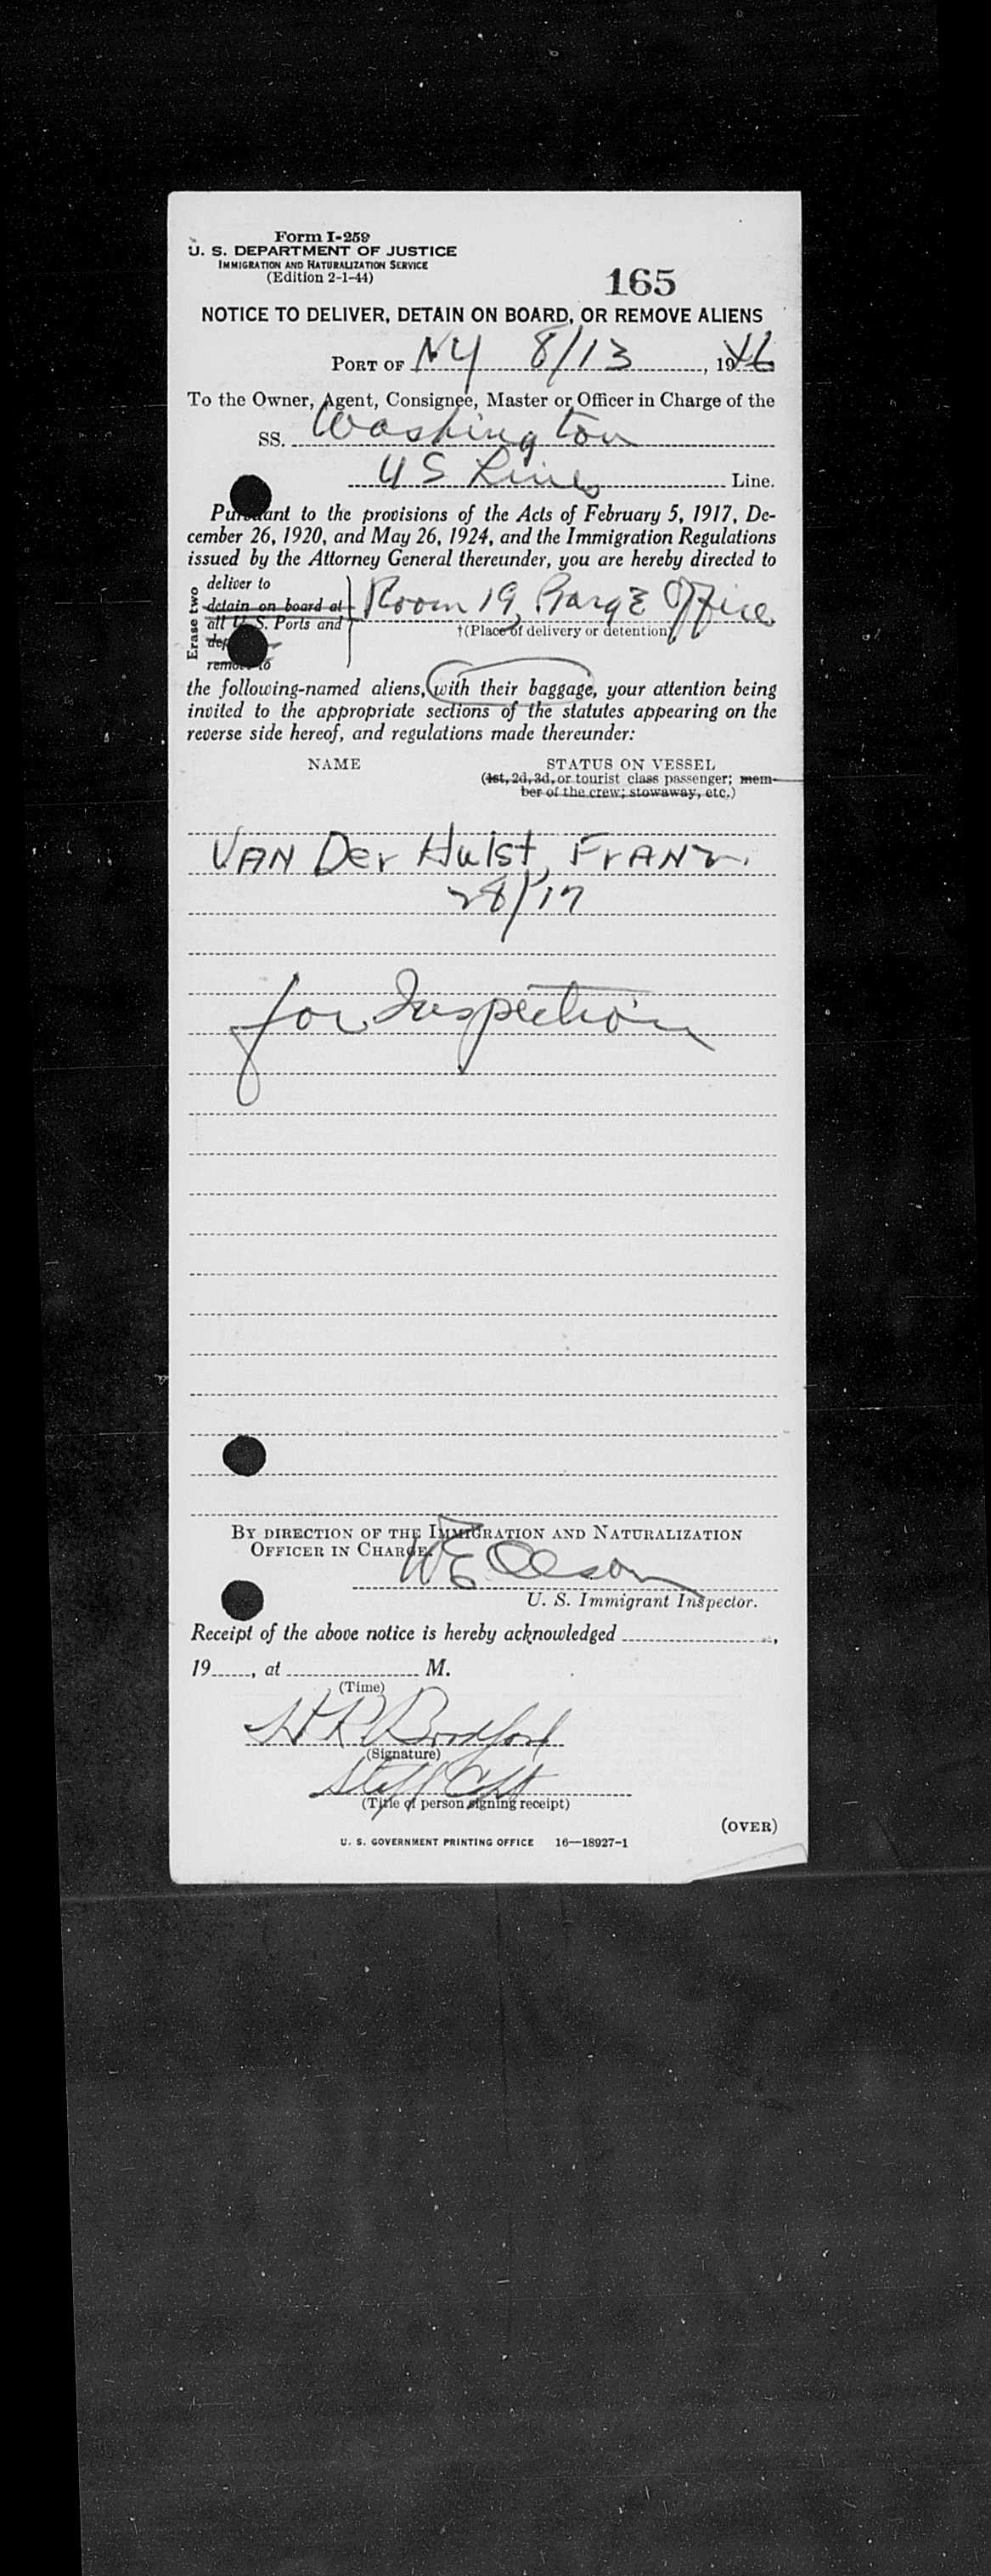 Form I-259
U. S. DEPARTMENT OF JUSTICE
IMMIGRATION AND NATURALIZATION SERVICE
(Edition 2-1-44)
165
NOTICE TO DELIVER, DETAIN ON BOARD, OR REMOVE ALIENS
PORT OF NY 8/13, 1946
To the Owner, Agent, Consignee, Master or Officer in Charge of the
SS. Washington
U S Lines Line.
Pursuant to the provisions of the Acts of February 5, 1917, De-
cember 26, 1920, and May 26, 1924, and the Immigration Regulations
issued by the Attorney General thereunder, you are hereby directed to
Erase two
deliver to
detain on board at
all U. S. Ports and
remove to
Room 19, Barge Office
†(Place of delivery or detention)
the following-named aliens, with their baggage, your attention being
invited to the appropriate sections of the statutes appearing on the
reverse side hereof, and regulations made thereunder:
NAME
STATUS ON VESSEL
(1st, 2d, 3d, or tourist class passenger; mem-
ber of the crew; stowaway, etc.)
VAN Der Hulst, FRANZ.
28/17
for Inspection
BY DIRECTION OF THE IMMIGRATION AND NATURALIZATION
OFFICER IN CHARGE.
W E Olson
U. S. Immigrant Inspector.
Receipt of the above notice is hereby acknowledged
19, at M.
(Time)
H R
(Signature)
Staff Capt
(Title of person signing receipt)
(OVER)
U. S. GOVERNMENT PRINTING OFFICE 16—18927-1